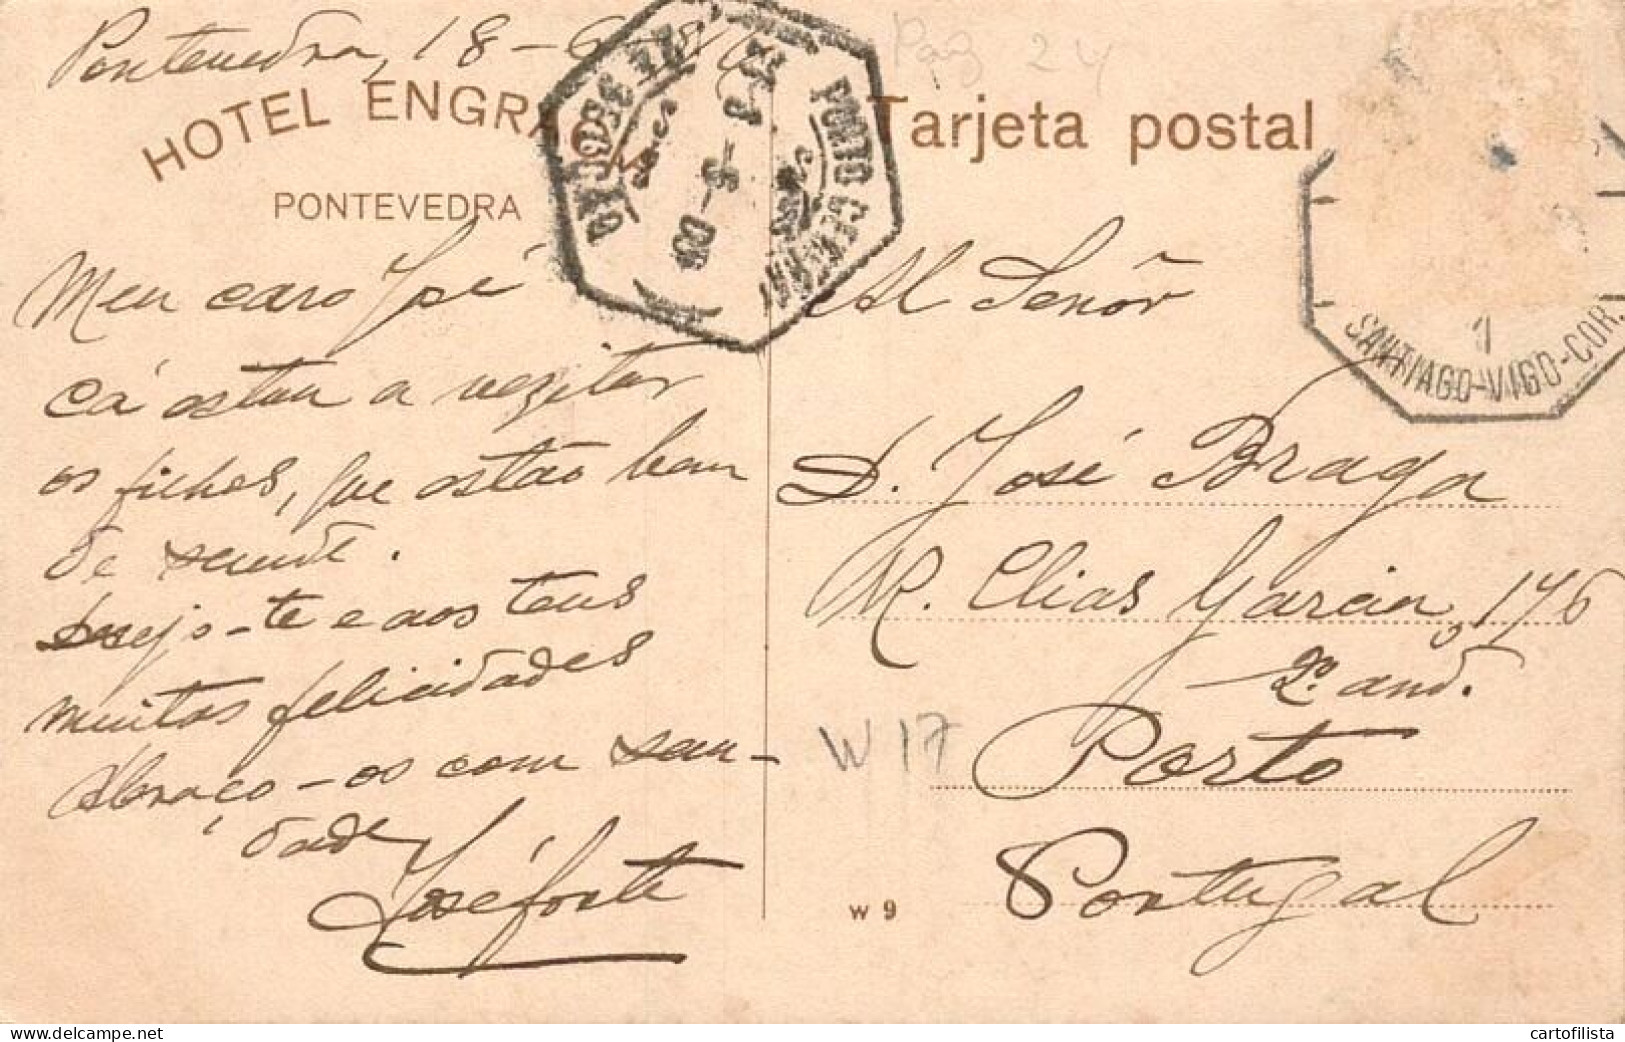 Pontevedra, 18-6
HOTEL ENGRACIA
PONTEVEDRA
Meu caro José
cá estou a vezitar
os filhos, que estão bem
de saude.
Desejo-te e aos teus
muitas felicidades
Abraço-os com sau-
dade
José forte
Pag 24
Tarjeta postal
PORTO CENTRAL
8-5
1
SANTIAGO-VIGO-COR.
Al Señor
D. José Braga
R. Elias Garcia, 176
2º and.
Porto
Portugal
W 17
W 9
delcampe.net
cartofilista